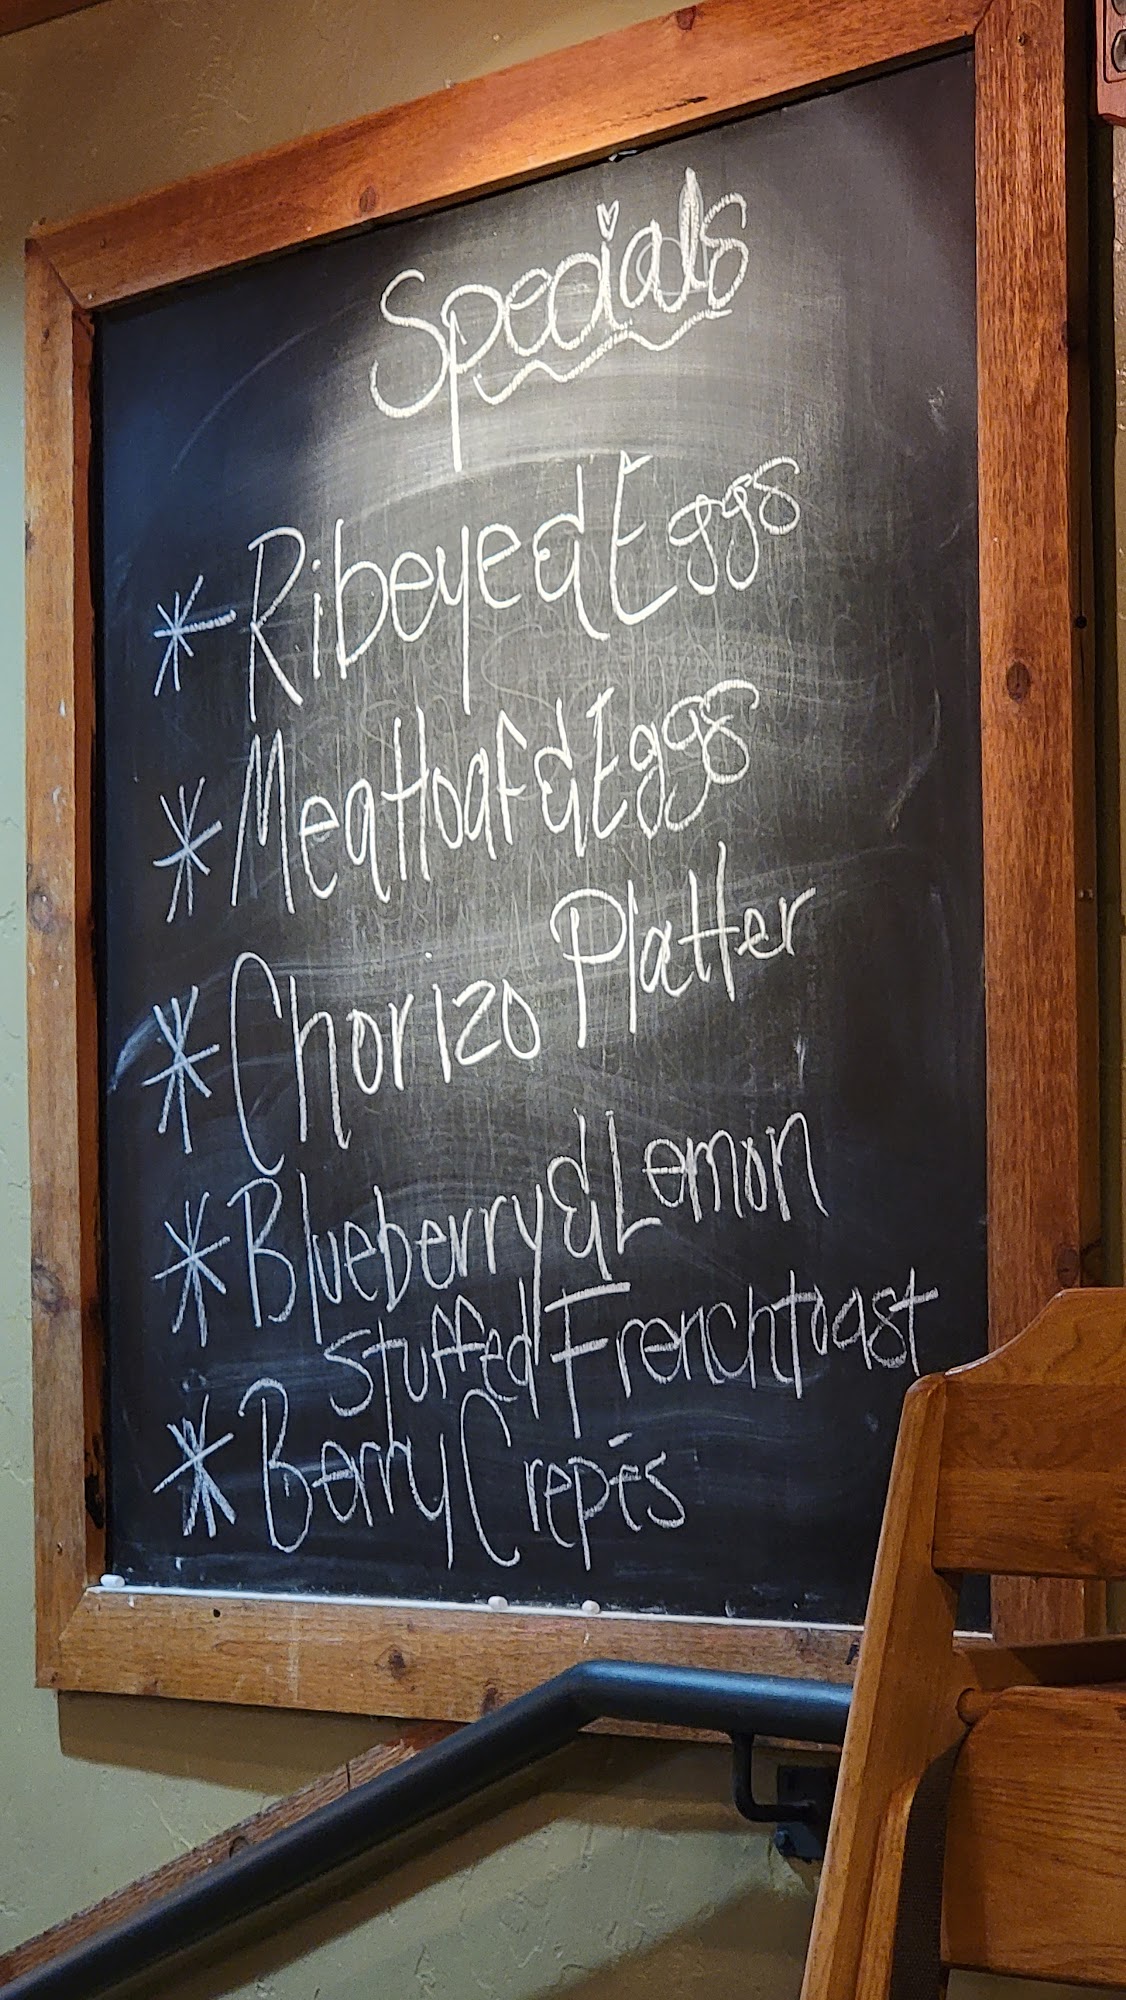 Specials
* Ribeye & Eggs
* Meatloaf & Eggs
* Chorizo Platter
* Blueberry & Lemon
stuffed Frenchtoast
* Berry Crepes